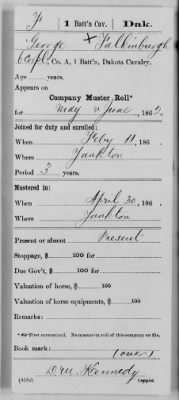 F | 1 Batt'n Cav. | Dak.
George × Falkinburgh
Corpl, Co. A, 1 Batt'n, Dakota Cavalry.
Age years.
Appears on
Company Muster Roll*
for May & June, 1862.
Joined for duty and enrolled:
When Feby 11, 186
Where Yankton
Period 3 years.
Mustered in:
When April 30, 186
Where Yankton
Present or absent Present
Stoppage, $ 100 for
Due Gov't, $ 100 for
Valuation of horse, $ 100
Valuation of horse equipments, $ 100
Remarks:
Book mark:
Kennedy
copyist.